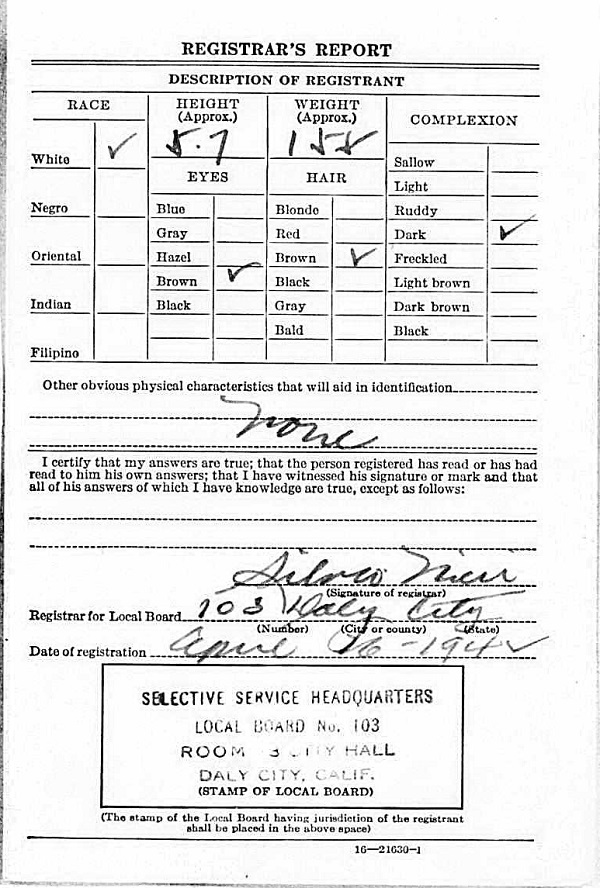 REGISTRAR'S REPORT
DESCRIPTION OF REGISTRANT
RACE
HEIGHT
(Approx.)
WEIGHT
(Approx.)
COMPLEXION
5.7
155
White ✓
EYES
HAIR
Sallow
Light
Negro
Blue
Blonde
Ruddy
Gray
Red
Dark ✓
Oriental
Hazel
Brown ✓
Freckled
Brown ✓
Black
Light brown
Indian
Black
Gray
Dark brown
Bald
Black
Filipino
Other obvious physical characteristics that will aid in identification
None
I certify that my answers are true; that the person registered has read or has had
read to him his own answers; that I have witnessed his signature or mark and that
all of his answers of which I have knowledge are true, except as follows:
Silvio
(Signature of registrar)
Registrar for Local Board 103 Daly City
(Number) (City or county) (State)
Date of registration April 26-1942
SELECTIVE SERVICE HEADQUARTERS
LOCAL BOARD No. 103
ROOM 3 CITY HALL
DALY CITY, CALIF.
(STAMP OF LOCAL BOARD)
(The stamp of the Local Board having jurisdiction of the registrant
shall be placed in the above space)
16—21630-1